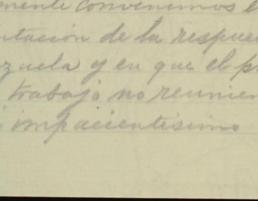 mente convenimos e
ntación de la respue
zuela y en que el p
trabajo no reunien
impacientisimo